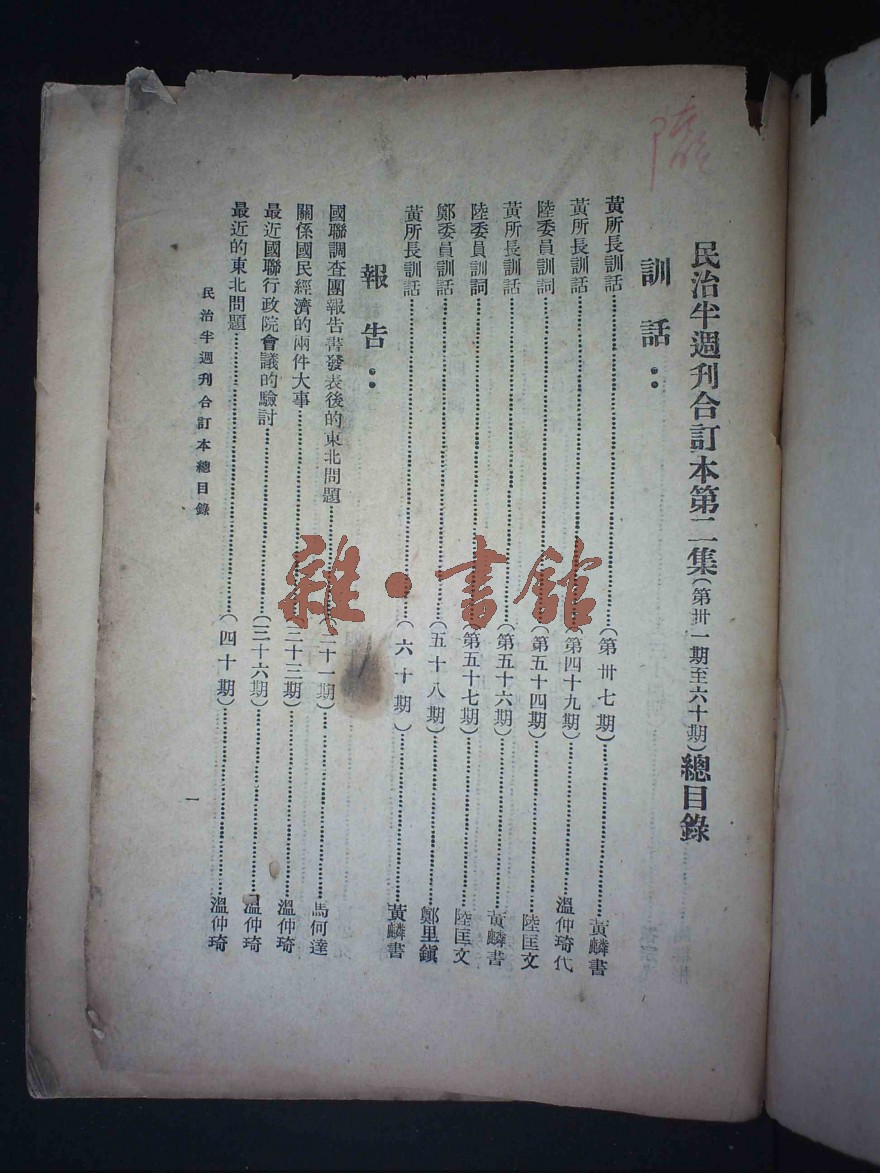 民治半週刊合訂本第二集(第卅一期至六十期)總目錄
訓話：
黃所長訓話…………(第卅七期)…………黃麟書
黃所長訓話…………(第四十九期)…………溫仲琦代
陸委員訓詞…………(第五十四期)…………陸匡文
黃所長訓話…………(第五十六期)…………黃麟書
陸委員訓詞…………(第五十七期)…………陸匡文
鄭委員訓話…………(五十八期)…………鄭里鎮
黃所長訓話…………(六十期)…………黃麟書
報告：
國聯調查團報告書發表後的東北問題…………十一期)…………馬何達
關係國民經濟的兩件大事…………三十三期)…………溫仲琦
最近國聯行政院會議的驗討…………(三十六期)…………溫仲琦
最近的東北問題…………(四十期)…………溫仲琦
民治半週刊合訂本總目錄
一
雜·書館